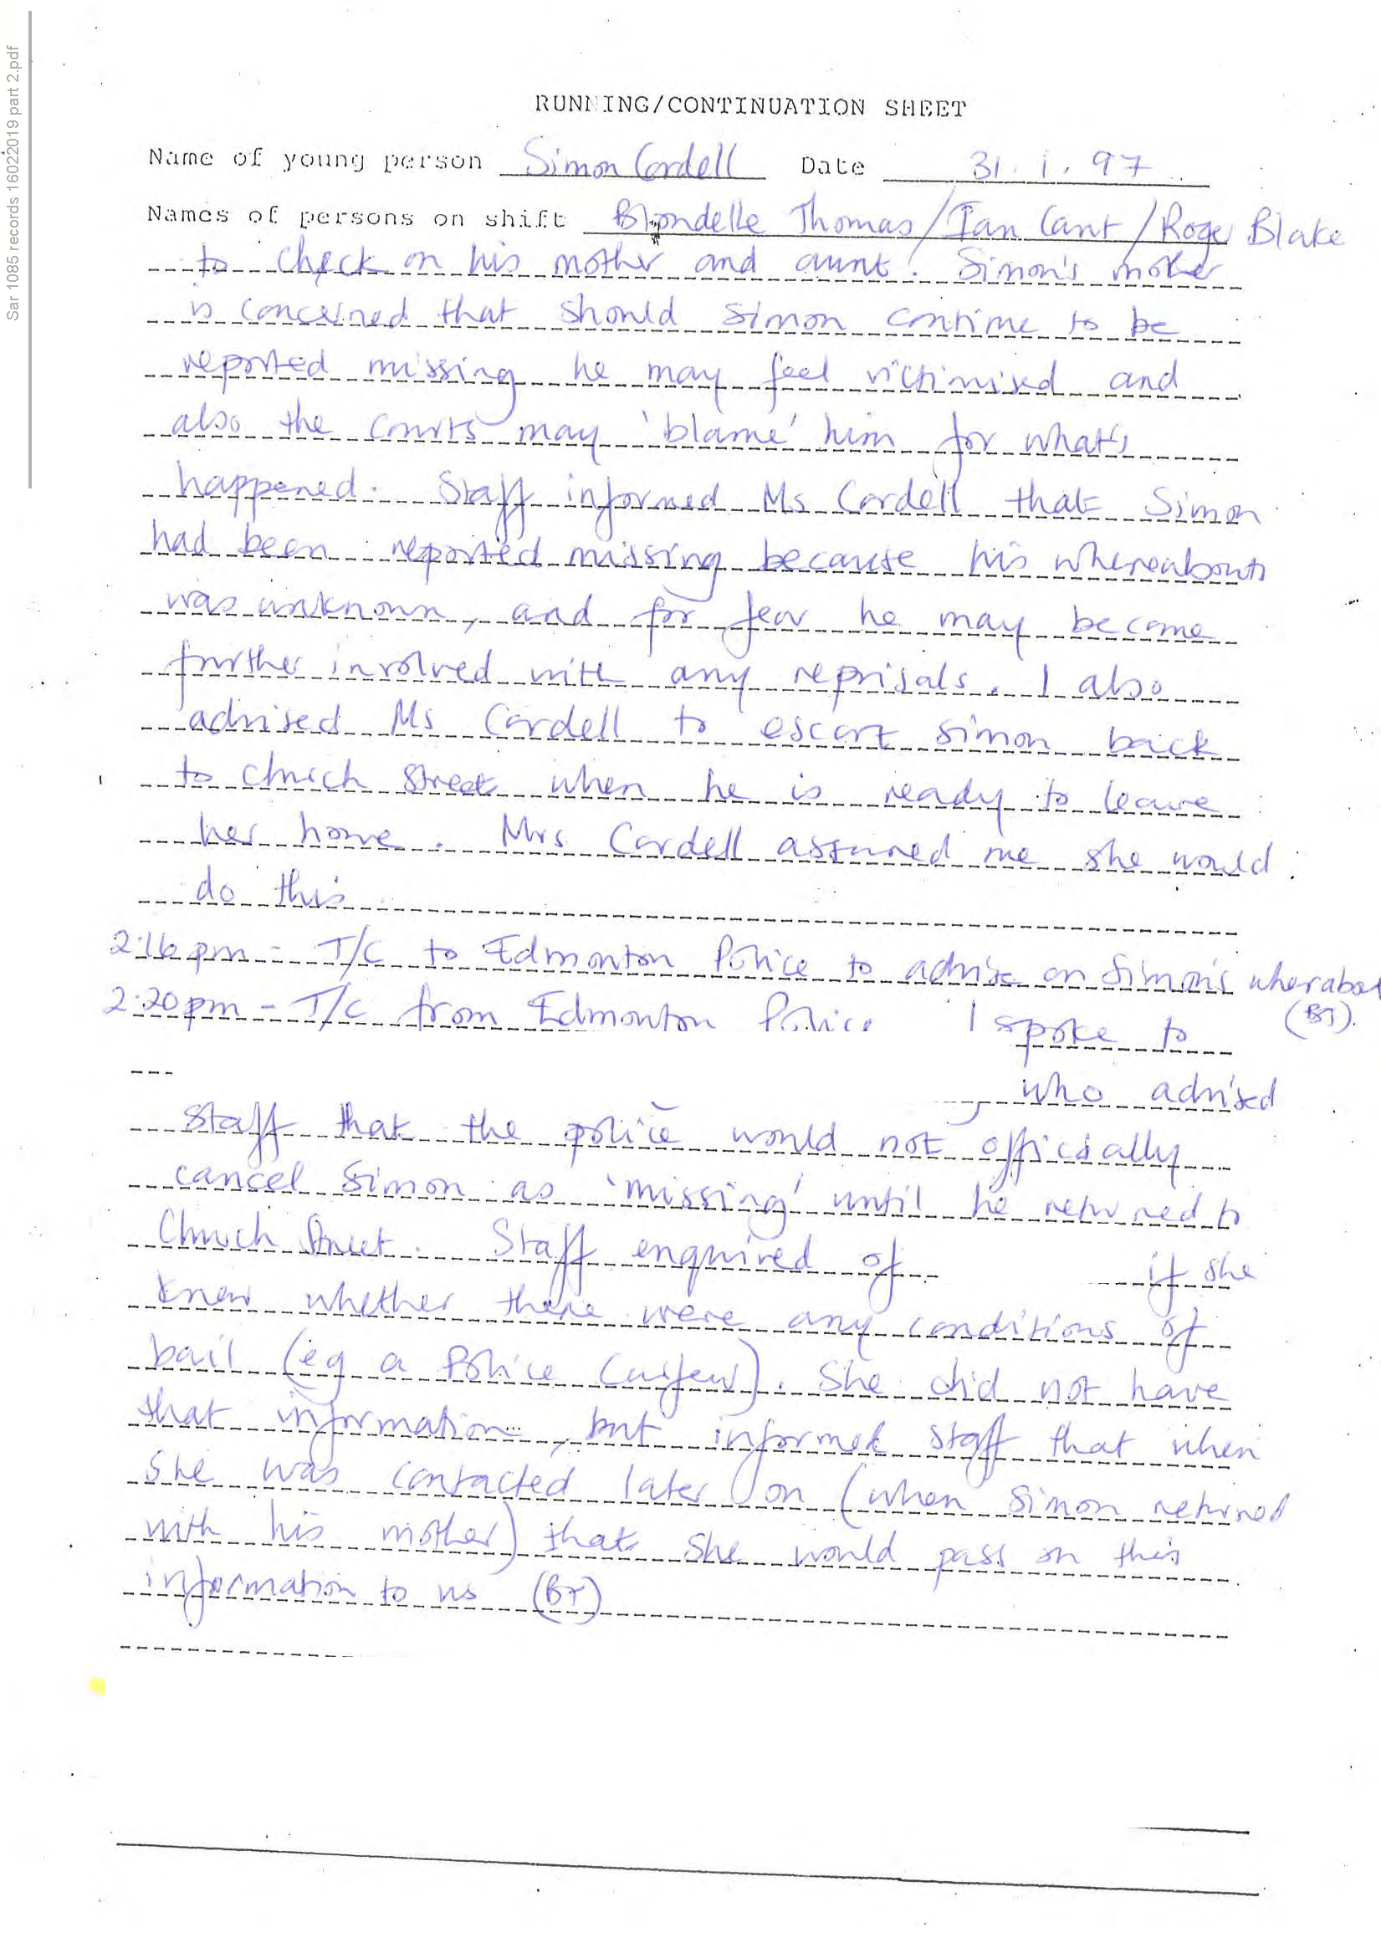 Sar 1085 records 16022019 part 2.pdf
RUNNING/CONTINUATION SHEET
Name of young person Simon Cordell Date 31.1.97
Names of persons on shift Blondelle Thomas/Ian Cant/Roger Blake
to check on his mother and aunt. Simon's mother
is concerned that should Simon continue to be
reported missing he may feel victimised and
also the courts may 'blame' him for what's
happened. Staff informed Ms Cordell that Simon
had been reported missing because his whereabouts
was unknown, and for fear he may become
further involved with any reprisals. I also
advised Ms Cordell to escort Simon back
to Church Street when he is ready to leave
her home. Mrs Cordell assured me she would
do this
2:16pm - T/C to Edmonton Police to advise on Simon's wherabout
(BT).
2:20pm - T/C from Edmonton Police I spoke to
who advised
staff that the police would not officially
cancel Simon as 'missing' until he returned to
Church Street. Staff enquired of if she
knew whether there were any conditions of
bail (eg a Police Curfew). She did not have
that information, but informed staff that when
she was contacted later on (when Simon returned
with his mother) that she would pass on this
information to us (BT)